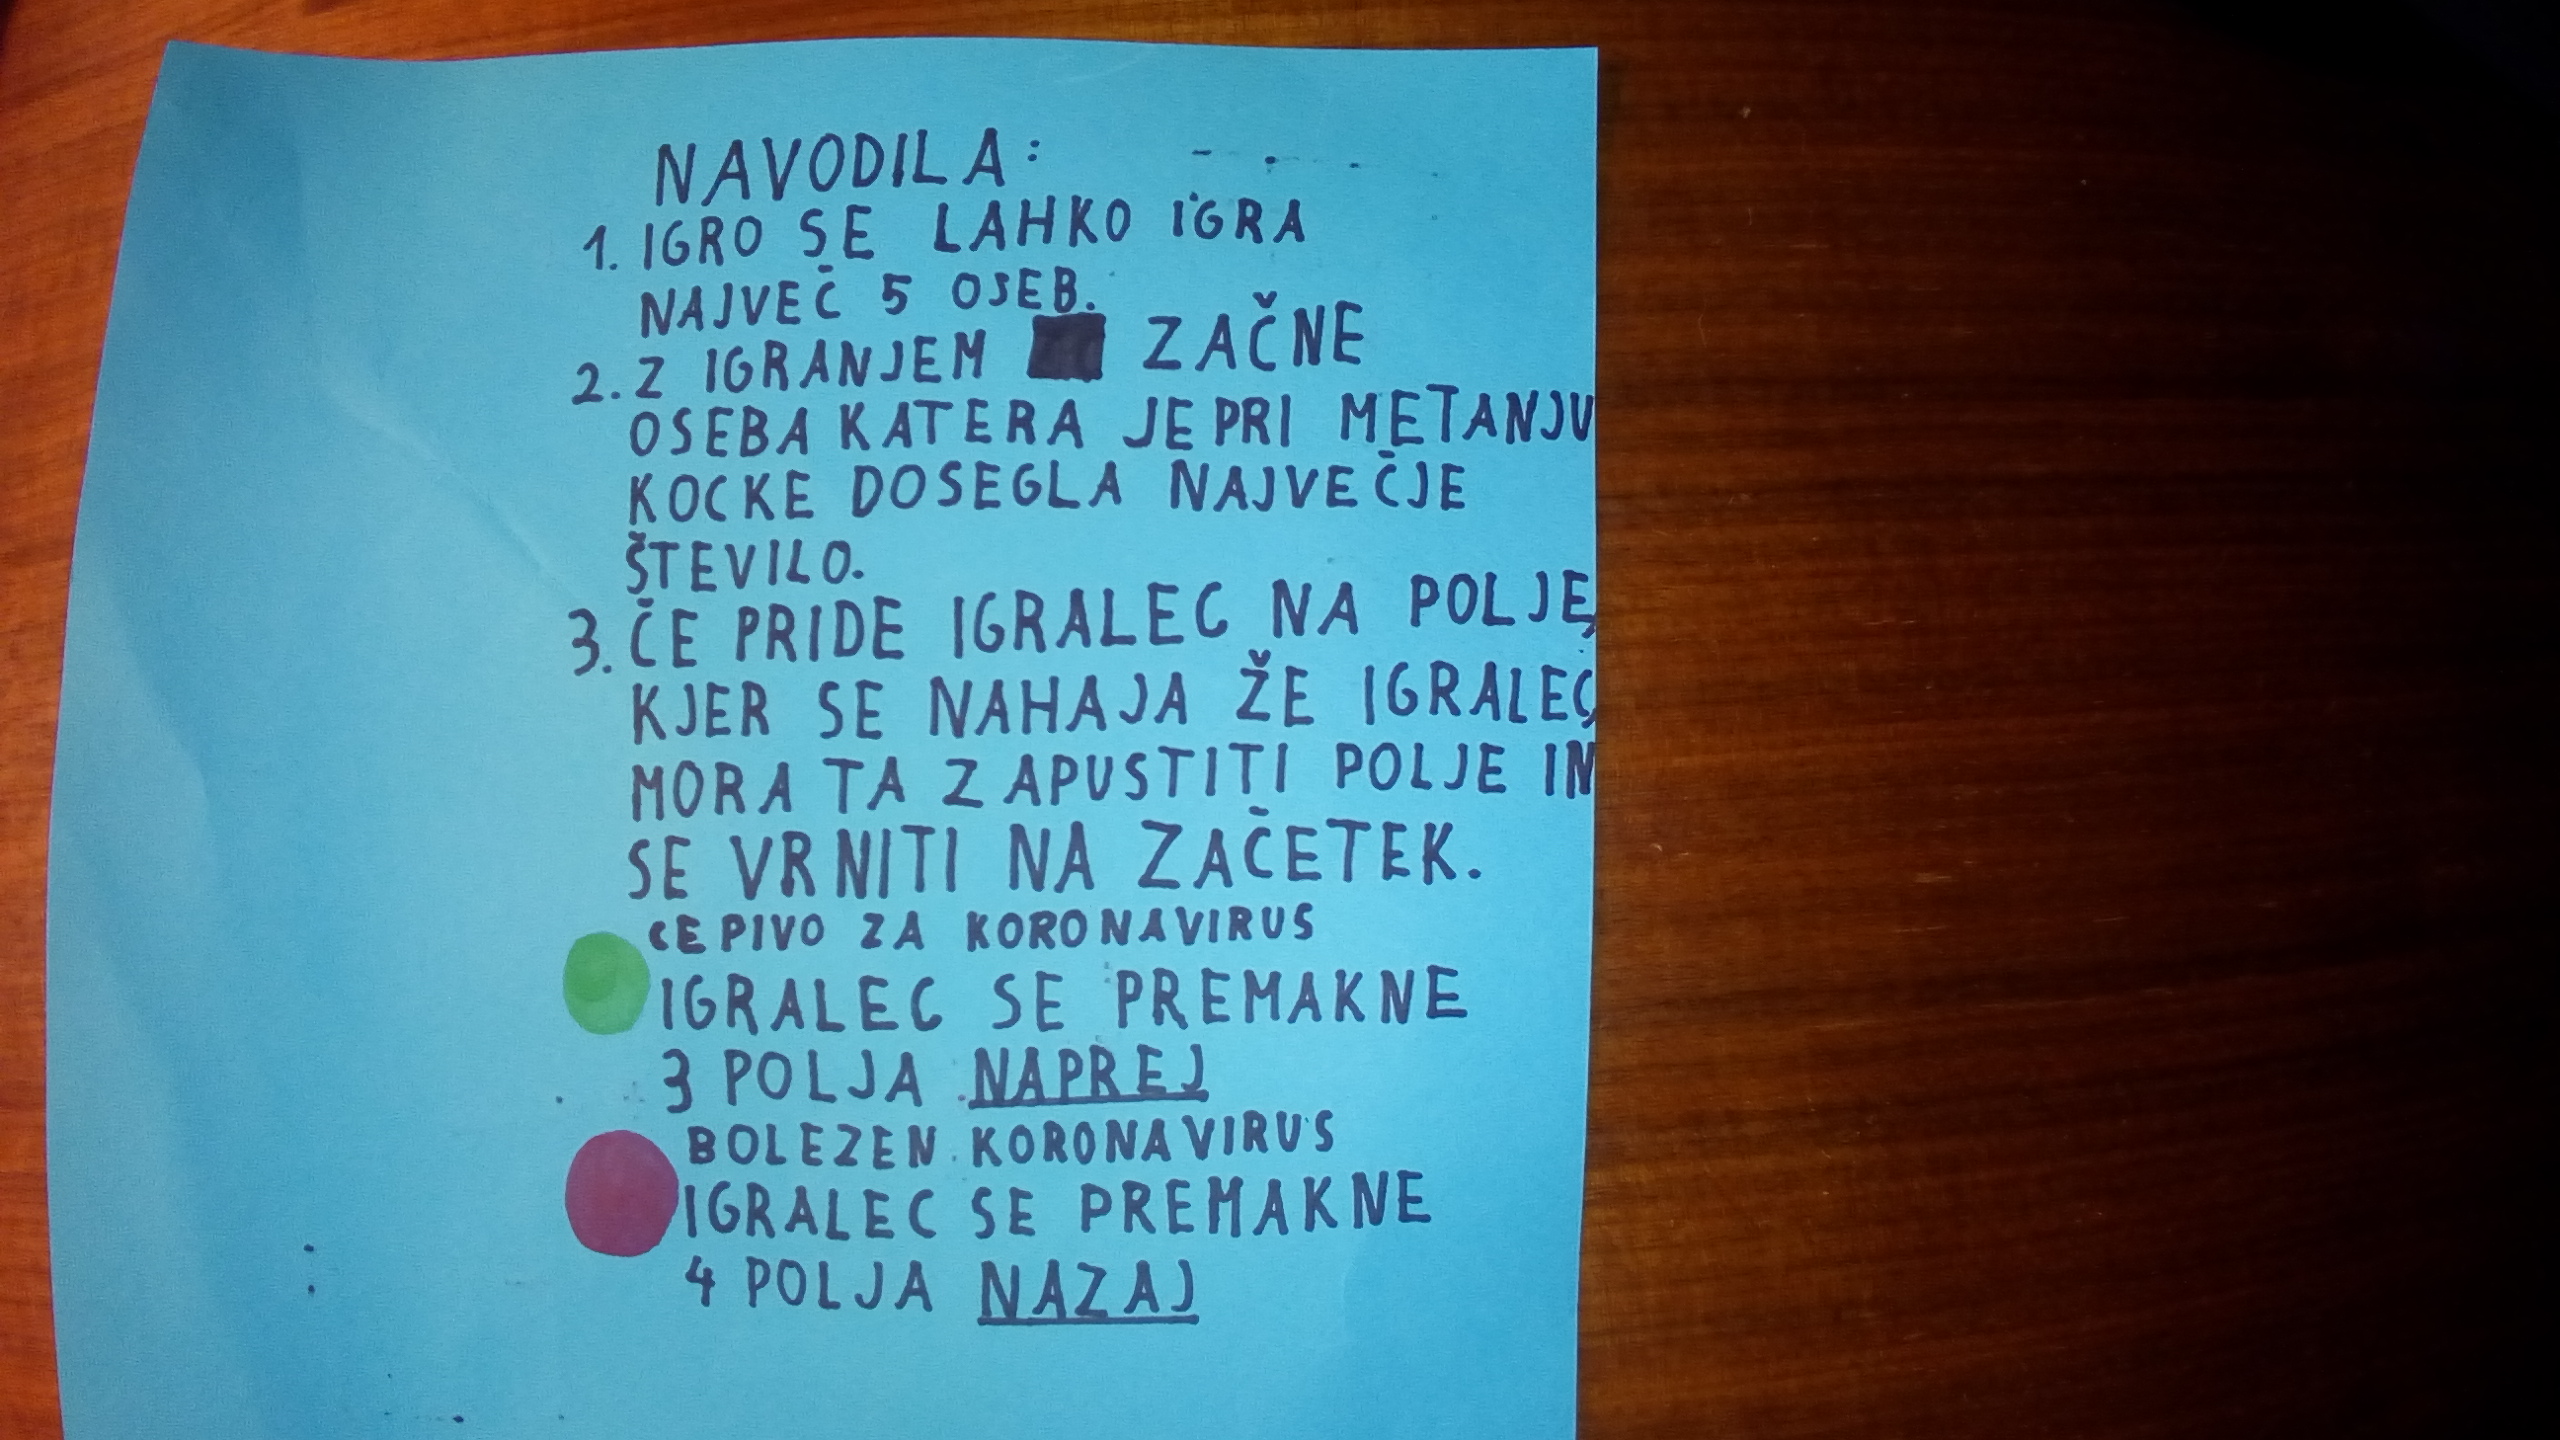 NAVODILA:
1. IGRO SE LAHKO IGRA
NAJVEČ 5 OSEB.
2. Z IGRANJEM ZAČNE
OSEBA KATERA JE PRI METANJU
KOCKE DOSEGLA NAJVEČJE
ŠTEVILO.
3. ČE PRIDE IGRALEC NA POLJE,
KJER SE NAHAJA ŽE IGRALEC,
MORA TA ZAPUSTITI POLJE IN
SE VRNITI NA ZAČETEK.
CEPIVO ZA KORONAVIRUS
IGRALEC SE PREMAKNE
3 POLJA NAPREJ
BOLEZEN KORONAVIRUS
IGRALEC SE PREMAKNE
4 POLJA NAZAJ